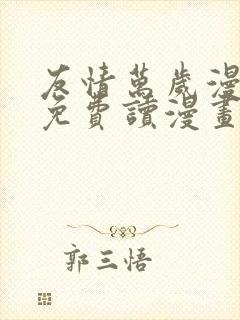 友情萬歲漫
免費讀漫畫
郭三悟